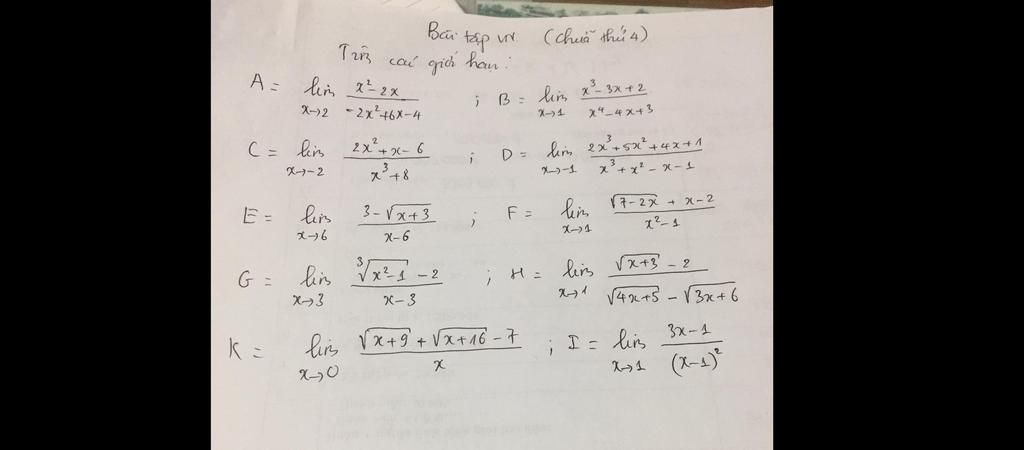 Bài tập VN (chữa thứ 4)
Tìm các giới hạn:
A = lim x→2 (x² - 2x)/(-2x² + 6x - 4) ; B = lim x→1 (x³ - 3x + 2)/(x⁴ - 4x + 3)
C = lim x→-2 (2x² + x - 6)/(x³ + 8) ; D = lim x→-1 (2x³ + 5x² + 4x + 1)/(x³ + x² - x - 1)
E = lim x→6 (3 - √(x+3))/(x - 6) ; F = lim x→1 (√(7-2x) + x - 2)/(x² - 1)
G = lim x→3 (∛(x² - 1) - 2)/(x - 3) ; H = lim x→1 (√(x+3) - 2)/(√(4x+5) - √(3x+6))
K = lim x→0 (√(x+9) + √(x+16) - 7)/x ; I = lim x→1 (3x - 1)/(x - 1)²